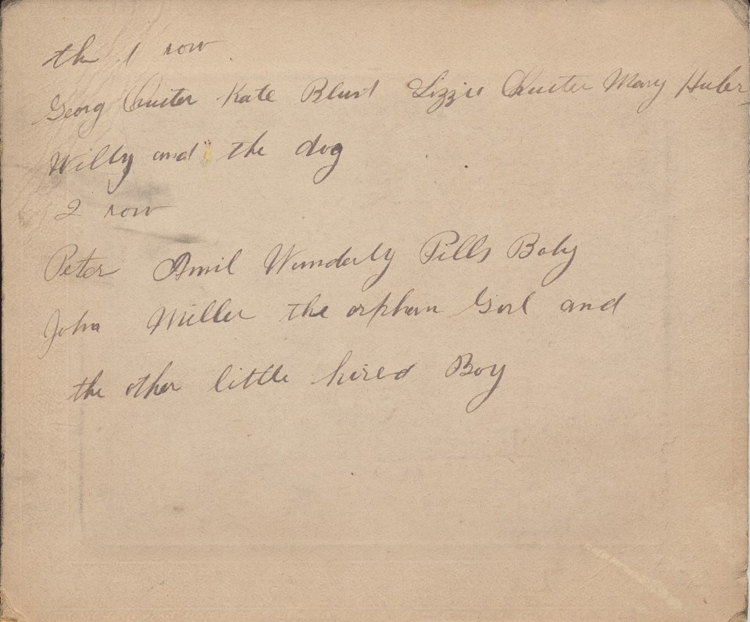 the 1 row
Georg Kate Blunt Lizzie Mary Huber
Willy and the dog
2 row
Peter Amil Wunderly Pills Boby
John Miller the orphan Girl and
the other little hired Boy